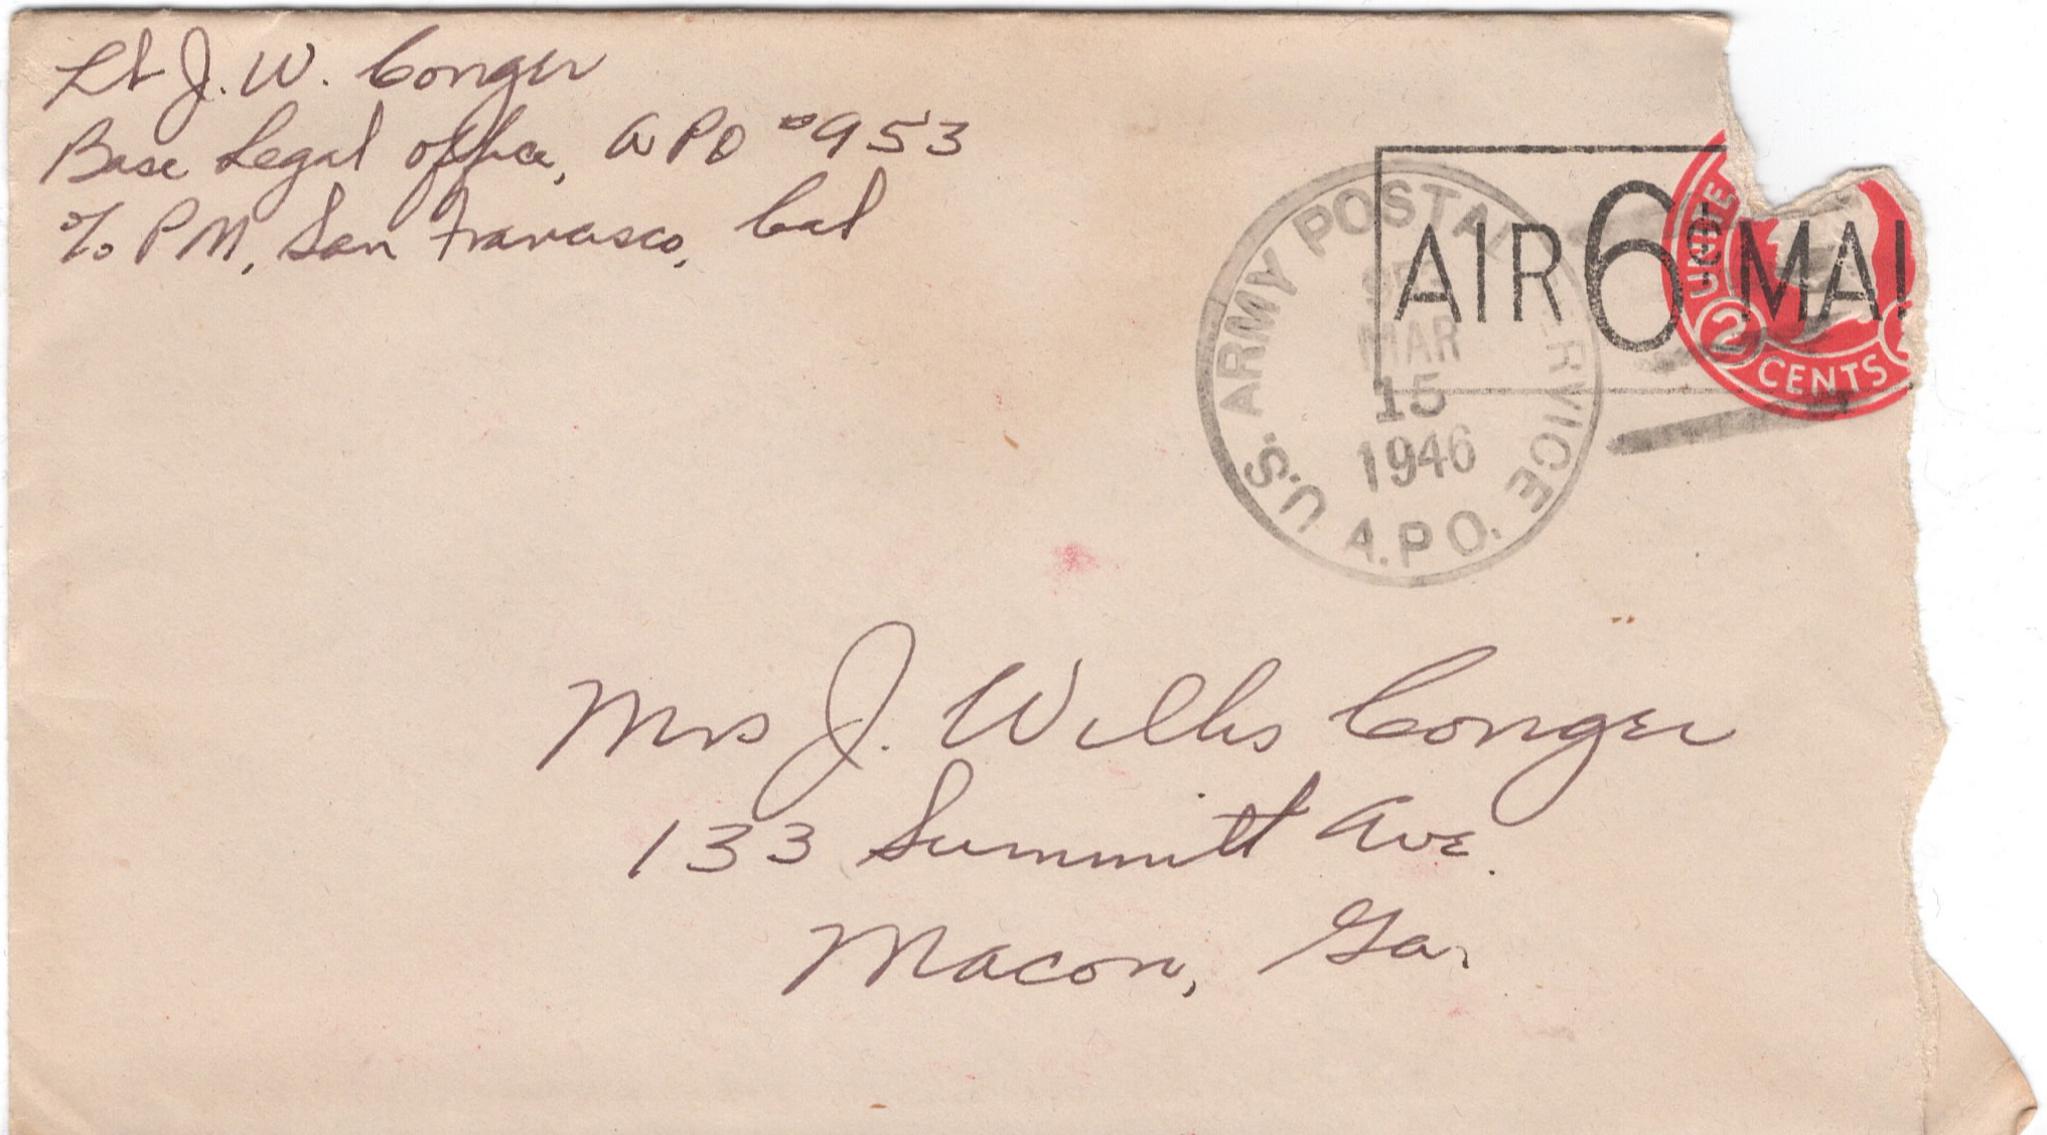 Lt J. W. Conger
Base Legal Office, APO #953
c/o PM, San Francisco, Cal
U.S. ARMY POSTAL SERVICE
A.P.O.
MAR
15
1946
AIR 6¢ MAI
UNITE
2
CENTS
Mrs J. Willis Conger
133 Summitt Ave.
Macon, Ga.